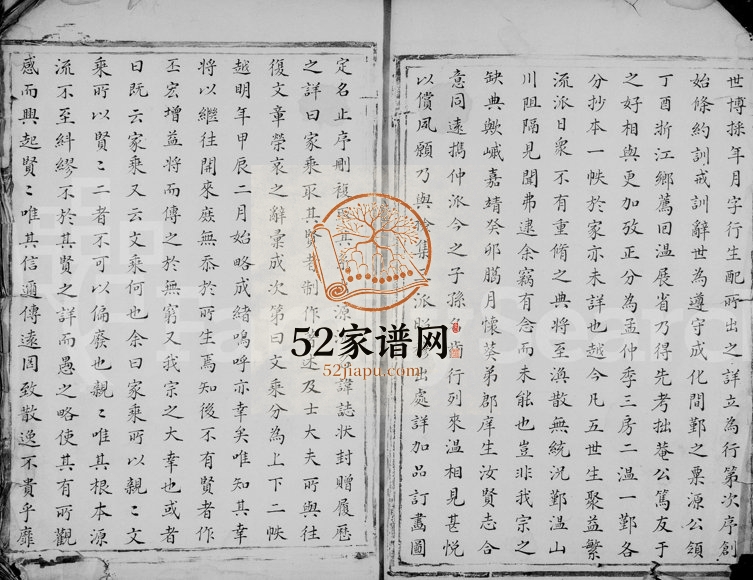 世博採年月字行生配所出之詳立為行第次序創
始條約訓戒訓辭世為遵守成化間鄞之栗源公領
丁酉浙江鄉薦回溫展省乃得先考拙菴公篤友于
之好相與更加攷正分為孟仲季三房二溫一鄞各
分抄本一帙於家亦未詳也越今凡五世生聚益繁
流派日衆不有重脩之典將至渙散無統況鄞溫山
川阻隔見聞弗逮余竊有念而未能也豈非我宗之
缺典歟嵗嘉靖癸卯臈月懷葵弟郡庠生汝賢志合
意同遠携仲派今之子孫 行列來溫相見甚悅
以償夙願乃與 集 派 出處詳加品訂畵圖
定名止序刪複 與 源 諱誌狀封贈履歷
之詳曰家乘取其賢 制作 述及士大夫所與往
復文章榮哀之辭彙成次第曰文乘分為上下二帙
越明年甲辰二月始略成緒嗚呼亦幸矣唯知其幸
將以繼往開來庶無忝於所生焉知後不有賢者作
丕宏增益將而傳之於無窮又我宗之大幸也或者
曰既云家乘又云文乘何也余曰家乘所以親〻文
乘所以賢〻二者不可以偏廢也親〻唯其根本源
流不至糾繆不於其賢之詳而愚之略使其有所觀
感而興起賢〻唯其信適傳遠因致散逸不貴乎靡
52家谱网
52jiapu.com
FamilySearch